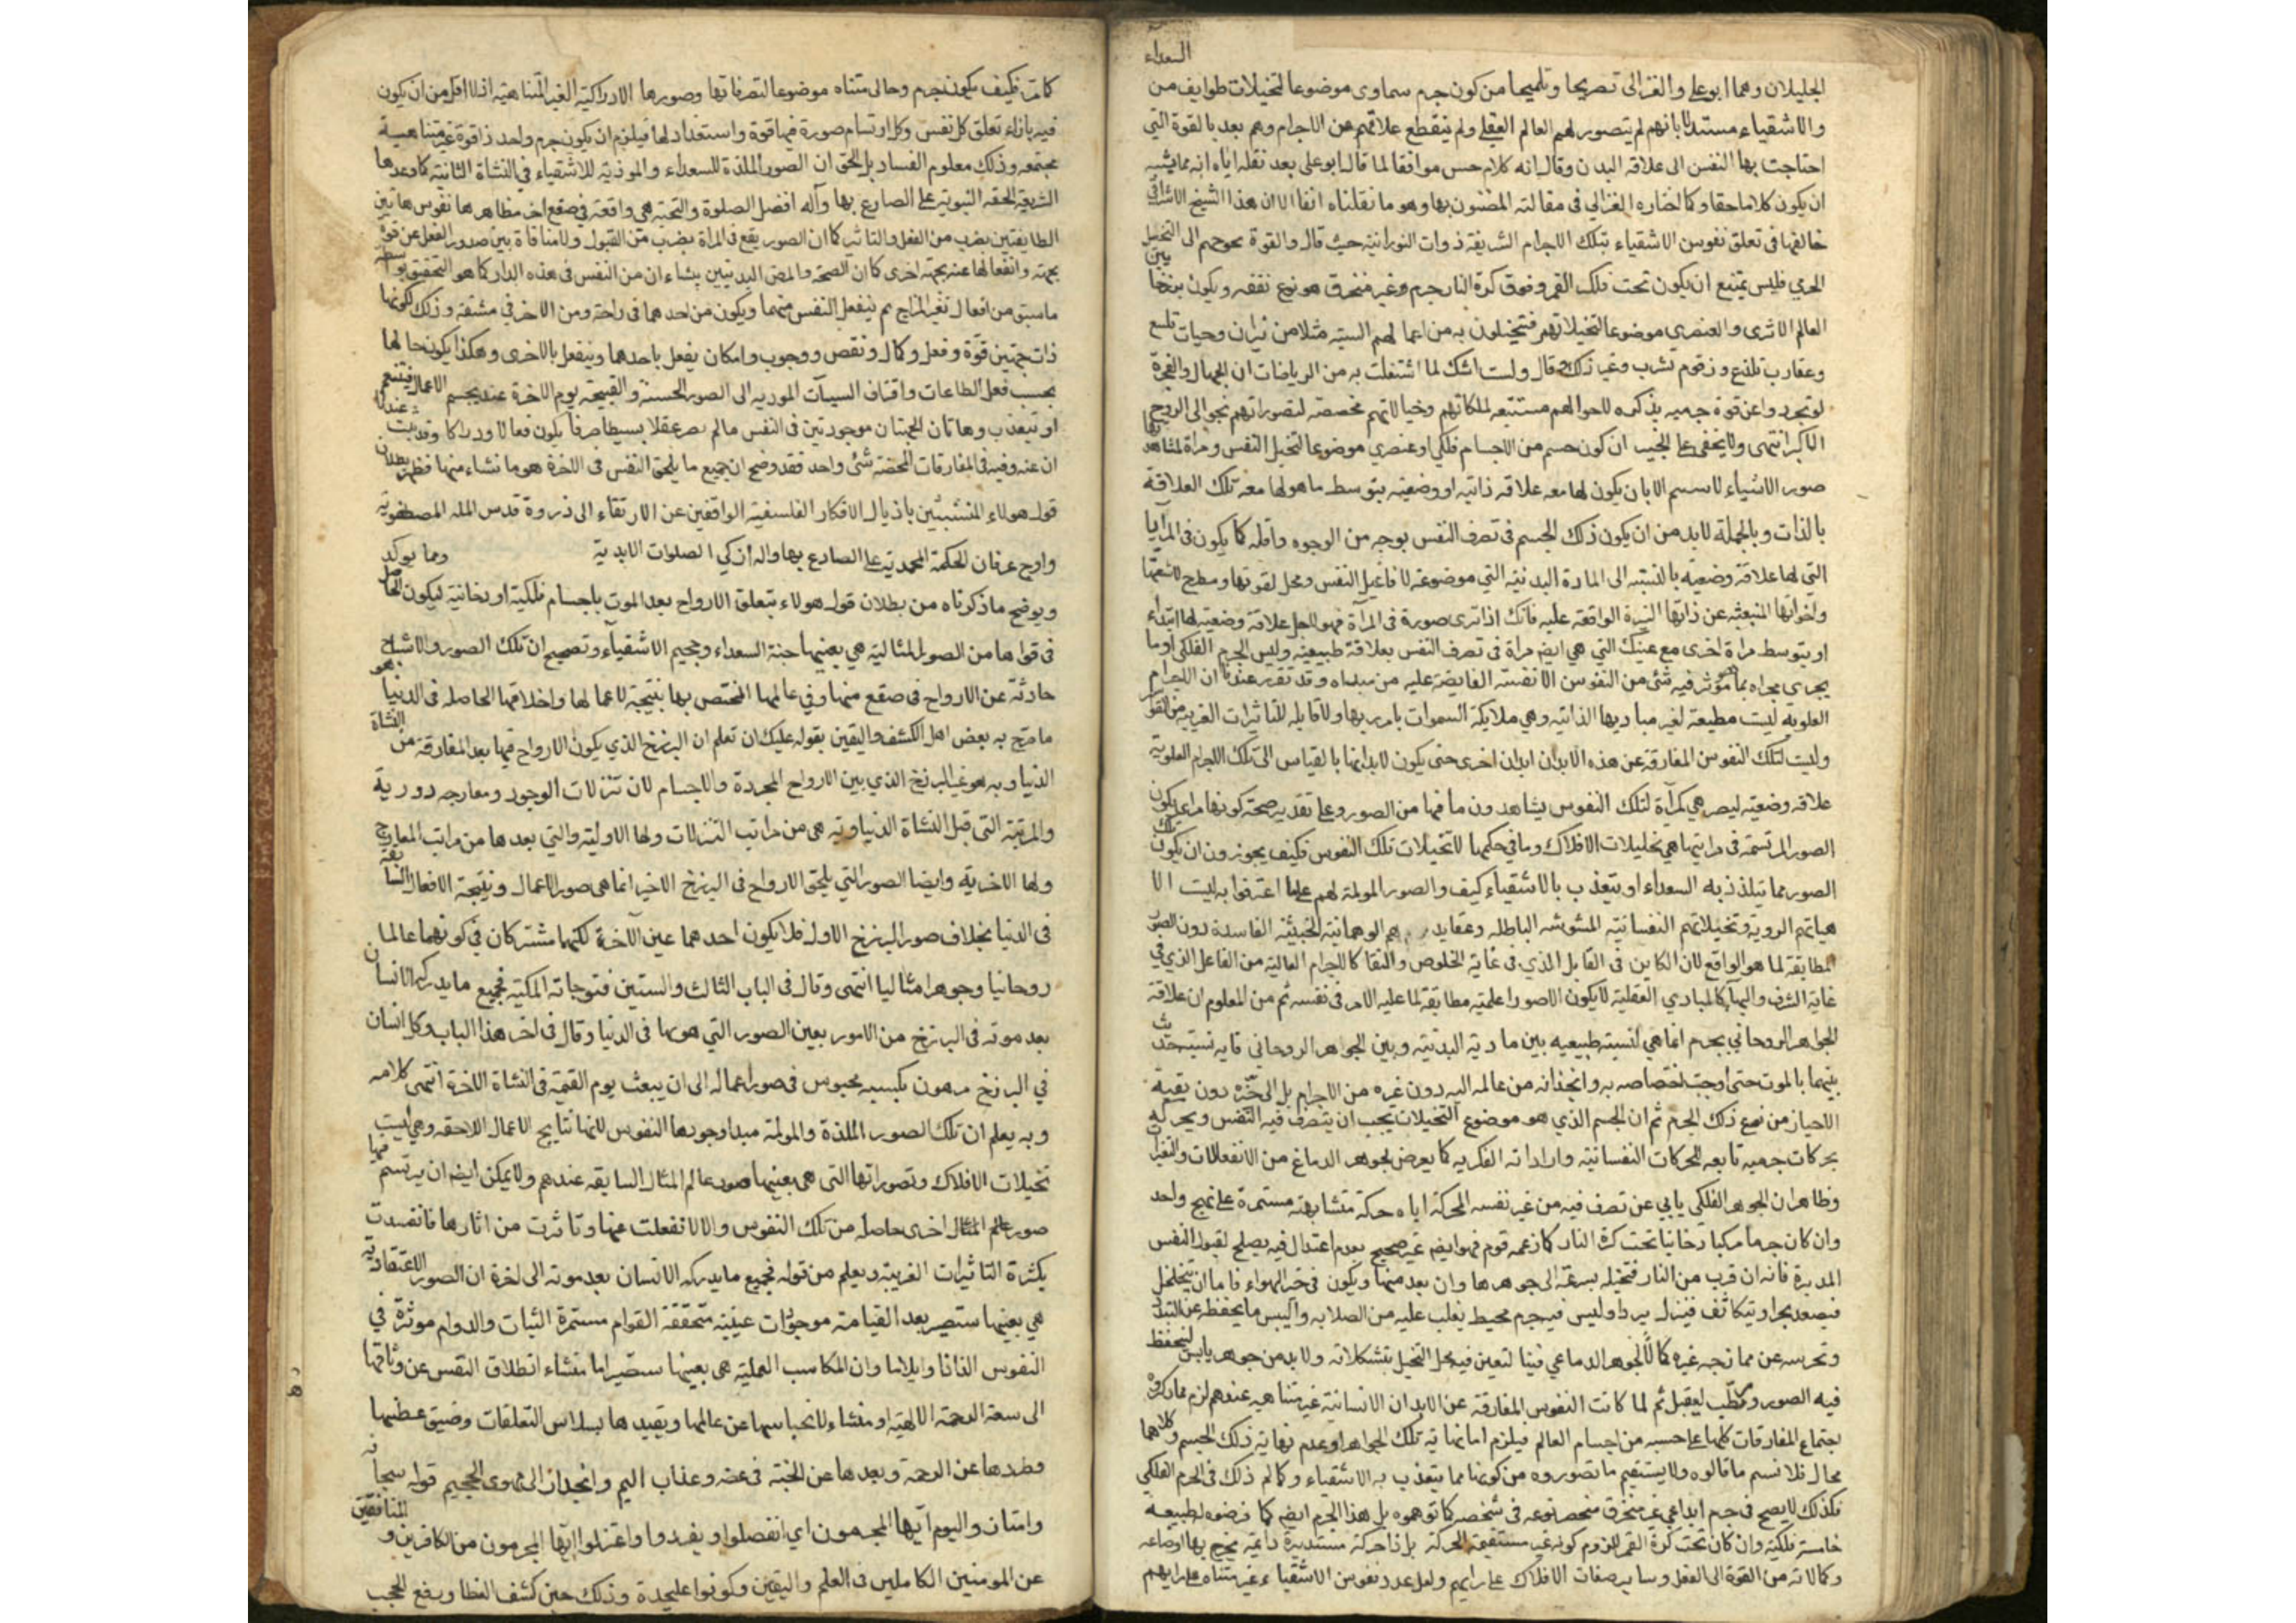 السعداء
الجليلان وهما ابو علي والغزالي تصريحا وتلميحا من كون جرم سماوى موضوعا لتخيلات طوايف من
والاشقياء مستدلا بانهم لم يتصور لهم العالم العقلى ولم ينقطع علاقتهم عن الاجرام وهم بعد بالقوة التى
احتاجت بها النفس الى علاقة البدن وقال انه كلام حسن موافقا لما قال ابو على بعد نقله اياه انه مما يشبه
ان يكون كلاما حقا وكما اختاره الغزالي في مقالته المضنون بها وهو ما نقلناه انفا الا ان هذا الشيخ الاشراقى
خالفها فى تعلق نفوس الاشقياء بتلك الاجرام الشريفة ذوات النورانية حيث قال والقوة تحوجهم الى التخيل
الجرمي فليس يمتنع ان يكون تحت فلك القمر وفوق كرة النار جرم وغير منخرق هو نوع نفسه ويكون برزخا بين
العالم الاثرى والعنصري موضوعا لتخيلاتهم فتخيلون به من اعمالهم السيئة مثلا من نيران وحيات تلسع
وعقارب تلدغ وزقوم يشرب وغير ذلك وقال ولست اشك لما اشتغلت به من الرياضات ان الجهال والفجرة
لو تجرد واعن قوة جرميه مذكره لاحوالهم مستتبعه لملكاتهم وخيالاتهم مخصصة لتصوراتهم نجوا الى الروح
الاكبر انتهى ولا يخفى على اللبيب ان كون جسم من الاجسام فلكي او عنصري موضوعا لتخيل النفس ومرآة لمشاهدتها
صور الاشياء لا يستقيم الا بان يكون لها معه علاقه ذاتيه او وضعيه بتوسط ما هو لها معه تلك العلاقة
بالذات وبالجملة لا بد من ان يكون ذلك الجسم فى تصرف النفس بوجه من الوجوه واقله كما يكون فى المرآيا
التي لها علاقة وضعيه بالنسبة الى المادة البدنية التي موضوعة لافاعيل النفس ومحل لقوتها ومطرح لاشعتها
واضوائها المنبعثه عن ذاتها النيرة الواقعة عليه فانك اذا ترى صورة فى المرآة فهو لاجل علاقة وضعيه لها ابتداء
او بتوسط مرآة اخرى مع عينك التي هي ايضا مرآة فى تصرف النفس بعلاقة طبيعية وليس الجرم الفلكى او ما
يجرى مجراه مما يؤثر فيه شئ من النفوس الا نفسه الفايضة عليه من مبدأه وقد تقرر عندنا ان الاجرام
العلوية ليست مطيعة لغير مباديها الذاتية وهي ملايكة السموات بامر ربها ولا قابله للتاثرات الغريبه من القواسر
وليست لتلك النفوس المفارقة عن هذه الابدان ابدان اخرى حتى يكون لابدانها بالقياس الى تلك الاجرام العلوية
علاقه وضعيه ليصر هي كمرآة لتلك النفوس يشاهدون ما فيها من الصور وعلى تقدير صحة كونها مرآيا يكون
الصور المرتسمة فى مراتبها هي تخيلات الافلاك وما في حكمها لا تخيلات تلك النفوس فكيف يجوزون ان يكون تلك
الصور مما يتلذذ به السعداء او يتعذب بالاشقياء كيف والصور المولمة لهم على ما اعترفوا به ليست الا
هياتهم الردية وتخيلاتهم النفسانية المشوشه الباطله وعقايدهم الوهمانية الخبيثة الفاسدة دون الصور
المطابقة لما هو الواقع لان الكاين فى القابل الذي فى غاية الخلوص والنقا كالاجرام العالية من الفاعل الذي في
غاية الشرف والبهاء كالمبادي العقلية لا يكون الا صورا علمية مطابقة لما عليه الامر فى نفسه ثم من المعلوم ان علاقة
الجواهر الروحاني بجرم انما هي لنسبة طبيعيه بين مادية البدنية وبين الجواهر الروحاني فاية نسبة حدثت
بينهما بالموت حتى اوجبت اختصاصه به وانجذابه من عالمه اليه دون غيره من الاجرام بل الى حيزه دون بقية
الاحياز من نوع ذلك الجرم ثم ان الجسم الذي هو موضوع التخيلات يجب ان يتصرف فيه النفس ويحركه
بحركات جرميه تابعه للحركات النفسانية واراداته الفكريه كما يعرض لجوهر الدماغ من الانفعالات والتغيرات
وظاهر ان الجوهر الفلكي يابي عن تصرف فيه من غير نفسه المحركة اياه حركة متشابهة مستمرة على نهج واحد
وان كان جرما مركبا دخانيا تحت كرة النار كما زعمه قوم فهو ايضا غير صحيح بعدم اعتدال فيه يصلح لقبول النفس
المدبرة فانه ان قرب من النار فتحيله بسرعة الى جوهرها وان بعد منها ويكون فى حيز الهواء فاما ان يتخلخل
فيصعد بحرا ويتكاثف فينزل بردا وليس فيه جرم محيط يغلب عليه من الصلابه واليبس ما يحفظه عن التبدد
وتحرسه عن ممازجه غيره كما للجوهر الدماعي فينا لتعين فيه محل التخيل بتشكلاته ولا بد من جوهر يابس لتحفظ
فيه الصور ورطب ليقبل ثم لما كانت النفوس المفارقة عن الابدان الانسانية غير متناهيه عندهم لزم مما ذكروه
اجتماع المفارقات كلها على حسبه من اجسام العالم فيلزم اما نهاية تلك الجواهر او عدم نهاية ذلك الجسم وكلاهما
محال فلا نسم ما قالوه ولا يستقيم ما تصوروه من كونها مما يتعذب به الاشقياء وكما لم ذلك فى الجرم الفلكي
فكذلك لا يصح فى جرم ابداعي غير منخرق منحصر نوعه فى شخصه كما توهموه بل هذا الجرم ايضا كما فرضوه لطبيعه
خامسة فلكية وان كان تحت كرة القمر للزوم كونه غير مستقيمة الحركة بل ذا حركة مستديرة دايمة يخرج بها اوضاعه
وكمالاته من القوة الى الفعل وساير صفات الافلاك على رايهم ولعل عدد نفوس الاشقياء غير متناه على رايهم
كما مر فكيف يكون جرم وحالى متناه موضوعا لتصرفاتها وصورها الادراكية الغير المتناهية اذ لا اقل من ان يكون
فيه بازاء تعلق كل نفس وكل ارتسام صورة فيها قوة واستعداد لها فيلزم ان يكون جرم واحد ذا قوة غير متناهية
مجتمعه وذلك معلوم الفساد بل الحق ان الصور الملذة للسعداء والموذية للاشقياء فى النشاة الثانية كما وعدها
الشريعة الحقة النبوية على الصادع بها وآله افضل الصلوة والتحية هى واقعة فى صقع اخر مظاهرها نفوس هاتين
الطايفتين بضرب من الفعل والتاثر كما ان الصور يقع فى المراة بضرب من القبول ولا منافاة بين صدور الفعل عن قوة
بجهة وانفعالها عنه بجهة اخرى كما ان الصحة والمرض البدنيين ينشاءان من النفس فى هذه الدار كما هو التحقيق بواسطة
ما سبق من افعال تغير المزاج ثم ينفعل النفس منهما ويكون من احدهما فى راحة ومن الاخر في مشقة وذلك لكونها
ذات جهتين قوة وفعل وكمال ونقص ووجوب وامكان يفعل باحدهما وينفعل بالاخرى وهكذا يكون حالها
بحسب فعل الطاعات واقتراف السيئات المودية الى الصور الحسنة والقبيحة يوم الاخرة عند تجسم الاعمال فيتنعم
او تتعذب وهاتان الجهتان موجودتين فى النفس ما لم يصر عقلا بسيطا صرفا يكون فعالا ودراكا وقد ثبت عندنا
ان عنه وفيه فى المفارقات المحضة شئ واحد فقد وضح ان جميع ما يلحق النفس فى الاخرة هو ما نشاء منها فظهر بطلان
قول هولاء المتشبثين باذيال الافكار الفلسفية الواقفين عن الارتقاء الى ذروة قدس المله المصطفوية
واوج عرفان الحكمة المحمدية على الصادع بها واله ازكى الصلوات الابدية ومما يوكد
ويوضح ما ذكرناه من بطلان قول هولاء بتعلق الارواح بعد الموت باجسام فلكية او دخانية ليكون الحاصل
فى قواها من الصور المثالية هي بعينها جنة السعداء وجحيم الاشقياء وتصحيح ان تلك الصور والاشباح
حادثة عن الارواح فى صقع منها وفي عالمها المختص بها بنتيجة لاعمالها واخلاقها الحاصله فى الدنيا هو
ما صرح به بعض اهل الكشف واليقين بقوله عليك ان تعلم ان البرزخ الذي يكون الارواح فيها بعد المفارقة من النشاة
الدنياويه هو غير البرزخ الذي بين الارواح المجردة والاجسام لان تنزلات الوجود ومعارجه دورية
والمرتبة التى قبل النشاة الدنياوية هى من مراتب التنزلات ولها الاولية والتي بعدها من مراتب المعارج
ولها الاخرية وايضا الصور التي يلحق الارواح فى البرزخ الاخير انما هى صور الاعمال ونتيجة الافعال السابقة
فى الدنيا بخلاف صور البرزخ الاول فلا يكون احدهما عين الآخر لكنهما مشتركان في كونهما عالما
روحانيا وجوهرا مثاليا انتهى وقال فى الباب الثالث والستين فتوحاته المكية فجميع ما يدركه الانسان
بعد موته فى البرزخ من الامور بعين الصور التي هو بها فى الدنيا وقال فى اخر هذا الباب وكل انسان
في البرزخ مرهون بكسبه محبوس فى صور اعماله الى ان يبعث يوم القيمة فى النشاة الاخرة انتهى كلامه
وبه يعلم ان تلك الصور الملذة والمولمة مبدا وجودها النفوس لانها نتايج الاعمال اللاحقه وهى ليست
تخيلات الافلاك وتصوراتها التى هى بعينها صور عالم المثال السابقه عندهم ولا يمكن ايضا ان يرتسم فيها
صور عالم المثال اخرى حاصلة من تلك النفوس والا لانفعلت عنها وتاثرت من اثارها فانفسدت
بكثرة التاثيرات الغريبة ويعلم من قوله فجميع ما يدركه الانسان بعد موته الى اخره ان الصور الاعتقادية
هي بعينها ستصير بعد القيامة موجودات عينية متحققة القوام مستمرة الثبات والدوام موثرة في
النفوس الذاذا وايلاما وان المكاسب العملية هى بعينها ستصير اما منشاء انطلاق النفس عن وثاقها
الى سعة الرحمة الالهية او منشاء لانحباسها عن عالمها وتقييدها بسلاسل التعلقات وضيق عطنها
وطردها عن الرحمة وبعدها عن الجنة فى غصه وعذاب اليم وانحدار الى مهوى الجحيم قوله سبحانه
وامتازوا اليوم ايها المجرمون اي انفصلوا وينفردوا واعتزلوا ايها المجرمون من الكافرين والمنافقين
عن المومنين الكاملين فى العلم واليقين وكونوا عليحدة وذلك حين كشف الغطا ورفع الحجب